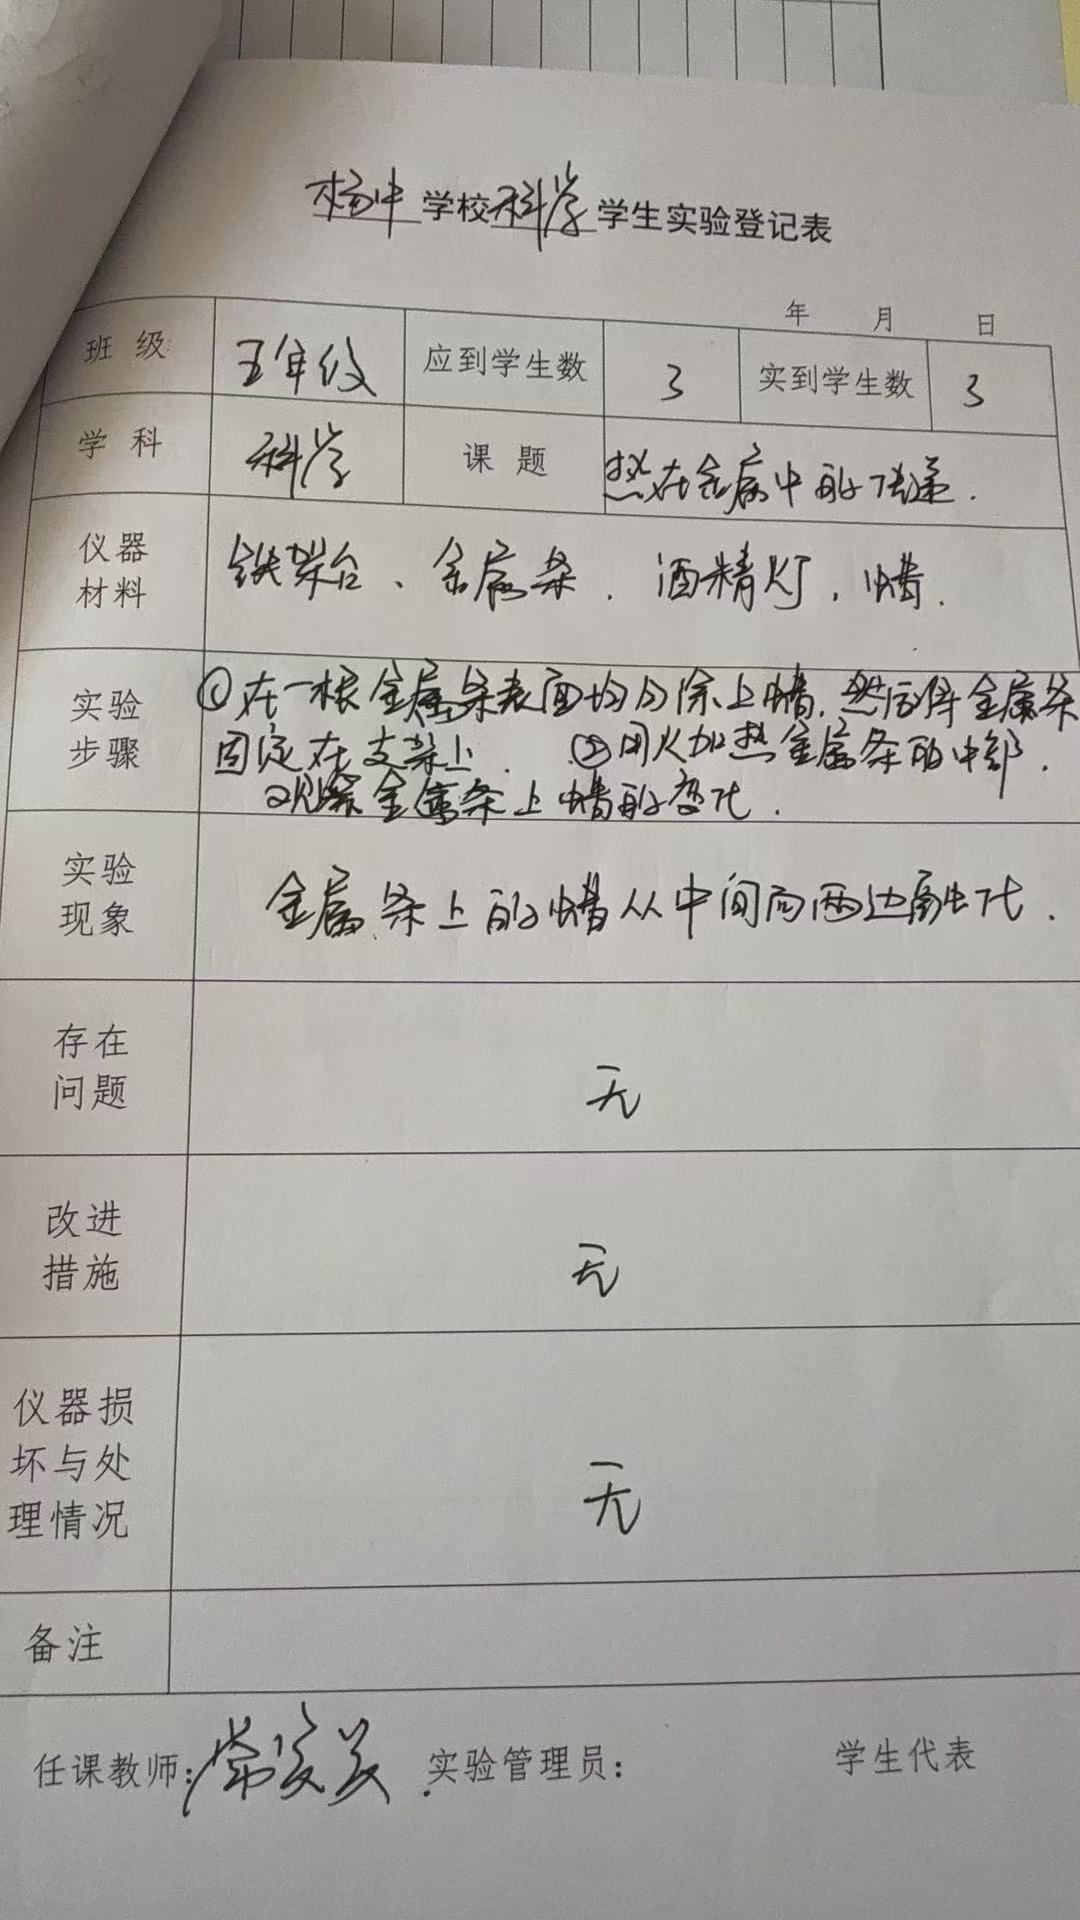 杨中学校科学学生实验登记表
年 月 日
班级 五年级 应到学生数 3 实到学生数 3
学科 科学 课题 热在金属中的传递.
仪器
材料
铁架台、金属条、酒精灯、蜡.
实验
步骤
①在一根金属条表面均匀涂上蜡,然后将金属条
固定在支架上. ②用火加热金属条的中部.
观察金属条上蜡的变化.
实验
现象
金属条上的蜡从中间向两边融化.
存在
问题
无
改进
措施
无
仪器损
坏与处
理情况
无
备注
任课教师: 实验管理员: 学生代表